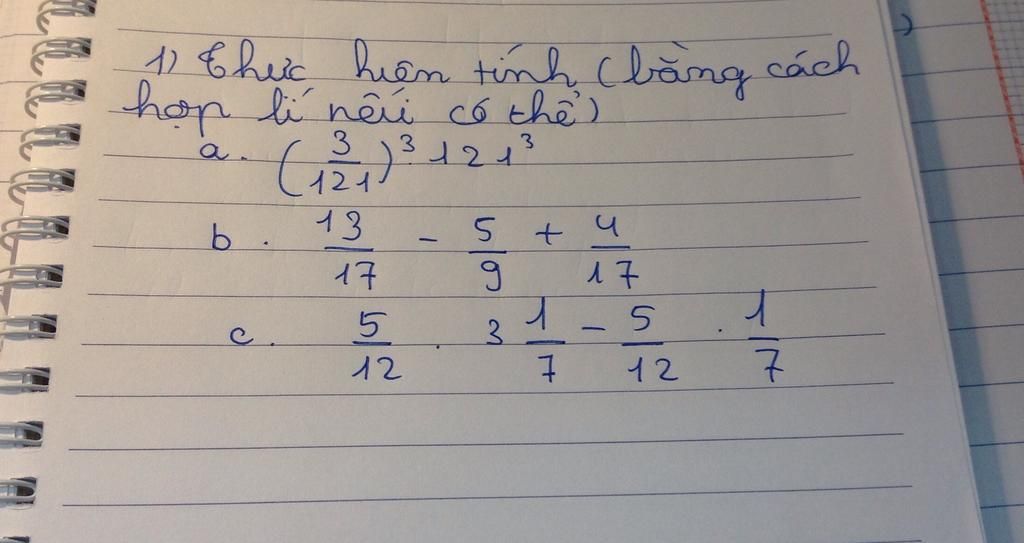 1) Thực hiện tính (bằng cách
hợp lí nếu có thể)
a. (3/121)³ · 121³
b. 13/17 - 5/9 + 4/17
c. 5/12 . 3 1/7 - 5/12 . 1/7